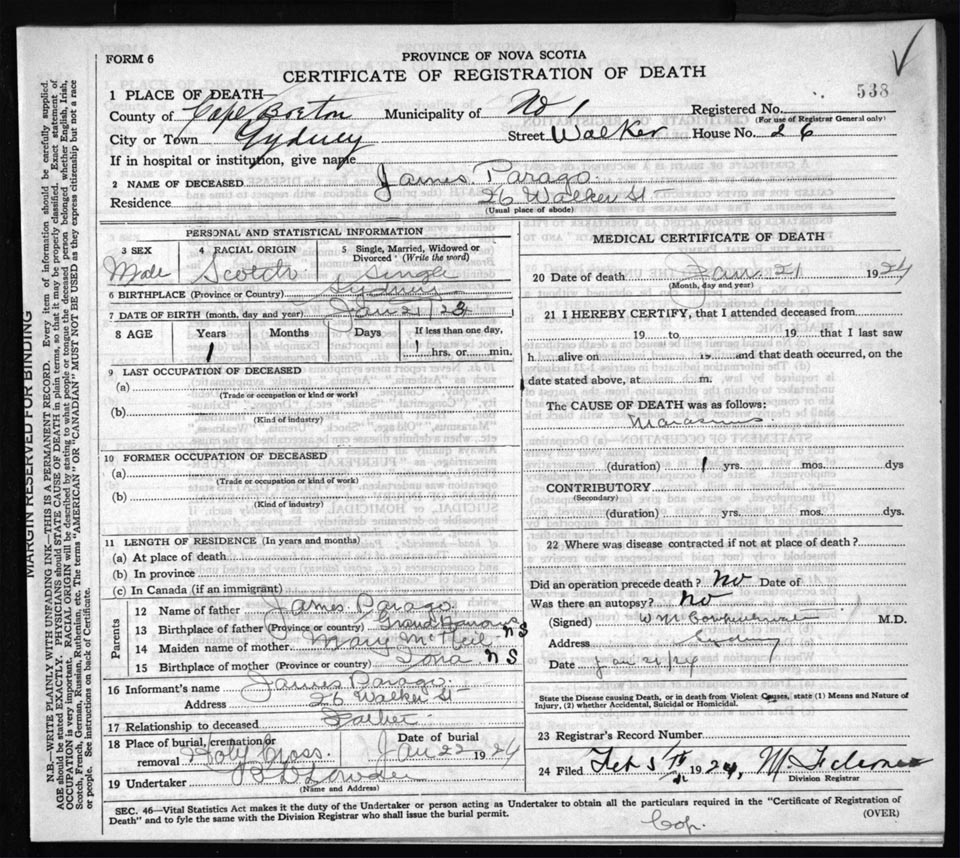 FORM 6
PROVINCE OF NOVA SCOTIA
CERTIFICATE OF REGISTRATION OF DEATH
538
1 PLACE OF DEATH
County of Cape Breton Municipality of Registered No.
(For use of Registrar General only)
City or Town Sydney Street Walker House No. 26
If in hospital or institution, give name
2 NAME OF DECEASED James Parago
Residence 26 Walker St
(Usual place of abode)
PERSONAL AND STATISTICAL INFORMATION
3 SEX 4 RACIAL ORIGIN 5 Single, Married, Widowed or Divorced (Write the word)
Male Scotch Single
6 BIRTHPLACE (Province or Country) Sydney
7 DATE OF BIRTH (month, day and year) Jan 21/23
8 AGE Years Months Days If less than one day,
1 hrs. or min.
9 LAST OCCUPATION OF DECEASED
(a)
(Trade or occupation or kind of work)
(b)
(Kind of industry)
10 FORMER OCCUPATION OF DECEASED
(a)
(Trade or occupation or kind of work)
(b)
(Kind of industry)
11 LENGTH OF RESIDENCE (In years and months)
(a) At place of death
(b) In province
(c) In Canada (if an immigrant)
Parents
12 Name of father James Parago
13 Birthplace of father (Province or country) Grand Narrows NS
14 Maiden name of mother Mary McNeil
15 Birthplace of mother (Province or country) Iona NS
16 Informant's name James Parago
Address 26 Walker St
17 Relationship to deceased Father
18 Place of burial, cremation or removal Holy Cross Date of burial Jan 22 1924
19 Undertaker
(Name and Address)
MEDICAL CERTIFICATE OF DEATH
20 Date of death Jan 21 1924
(Month, day and year)
21 I HEREBY CERTIFY, that I attended deceased from
19 to 19 that I last saw
h alive on 19 and that death occurred, on the
date stated above, at m.
The CAUSE OF DEATH was as follows:
Marasmus
(duration) 1 yrs. mos. dys
CONTRIBUTORY
(Secondary)
(duration) yrs. mos. dys.
22 Where was disease contracted if not at place of death?
Did an operation precede death? No Date of
Was there an autopsy? No
(Signed) M.D.
Address Sydney
Date Jan 21/24
State the Disease causing Death, or in death from Violent Causes, state (1) Means and Nature of
Injury, (2) whether Accidental, Suicidal or Homicidal.
23 Registrar's Record Number
24 Filed Feb 5th 1924,
Division Registrar
SEC. 46—Vital Statistics Act makes it the duty of the Undertaker or person acting as Undertaker to obtain all the particulars required in the "Certificate of Registration of
Death" and to fyle the same with the Division Registrar who shall issue the burial permit.
(OVER)
Cop.
MARGIN RESERVED FOR BINDING
N.B.—WRITE PLAINLY WITH UNFADING INK—THIS IS A PERMANENT RECORD. Every item of information should be carefully supplied.
AGE should be stated EXACTLY. PHYSICIANS should STATE CAUSE OF DEATH in plain terms, so that it may be properly classified. Exact statement of
OCCUPATION is very important. RACIAL ORIGIN will be described by stating to what people or tongue the deceased person belonged whether English, Irish,
Scotch, French, German, Russian, Ruthenian, etc. The terms "AMERICAN" or "CANADIAN" MUST NOT BE USED as they express citizenship but not a race
or people. See instructions on back of Certificate.